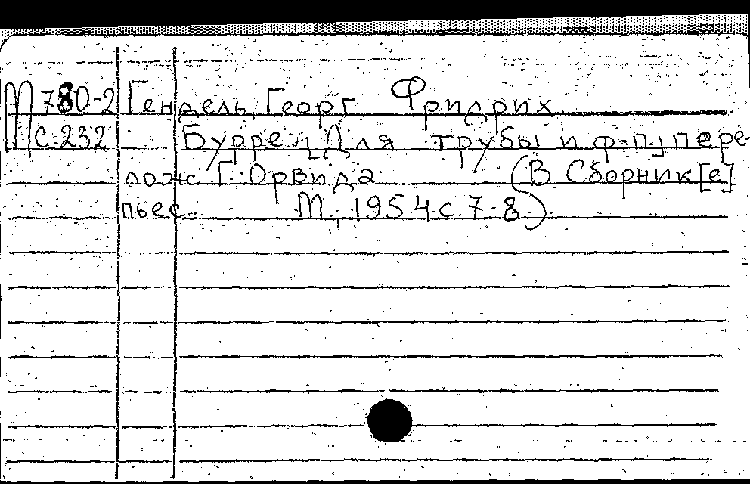 П 780-2 Гендель, Георг Фридрих
С-232 Бурре[.] Для трубы и ф-п[.] пере-
лож. Г. Орвида (В Сборник[е]
пьес. М., 1954 с 7-8).